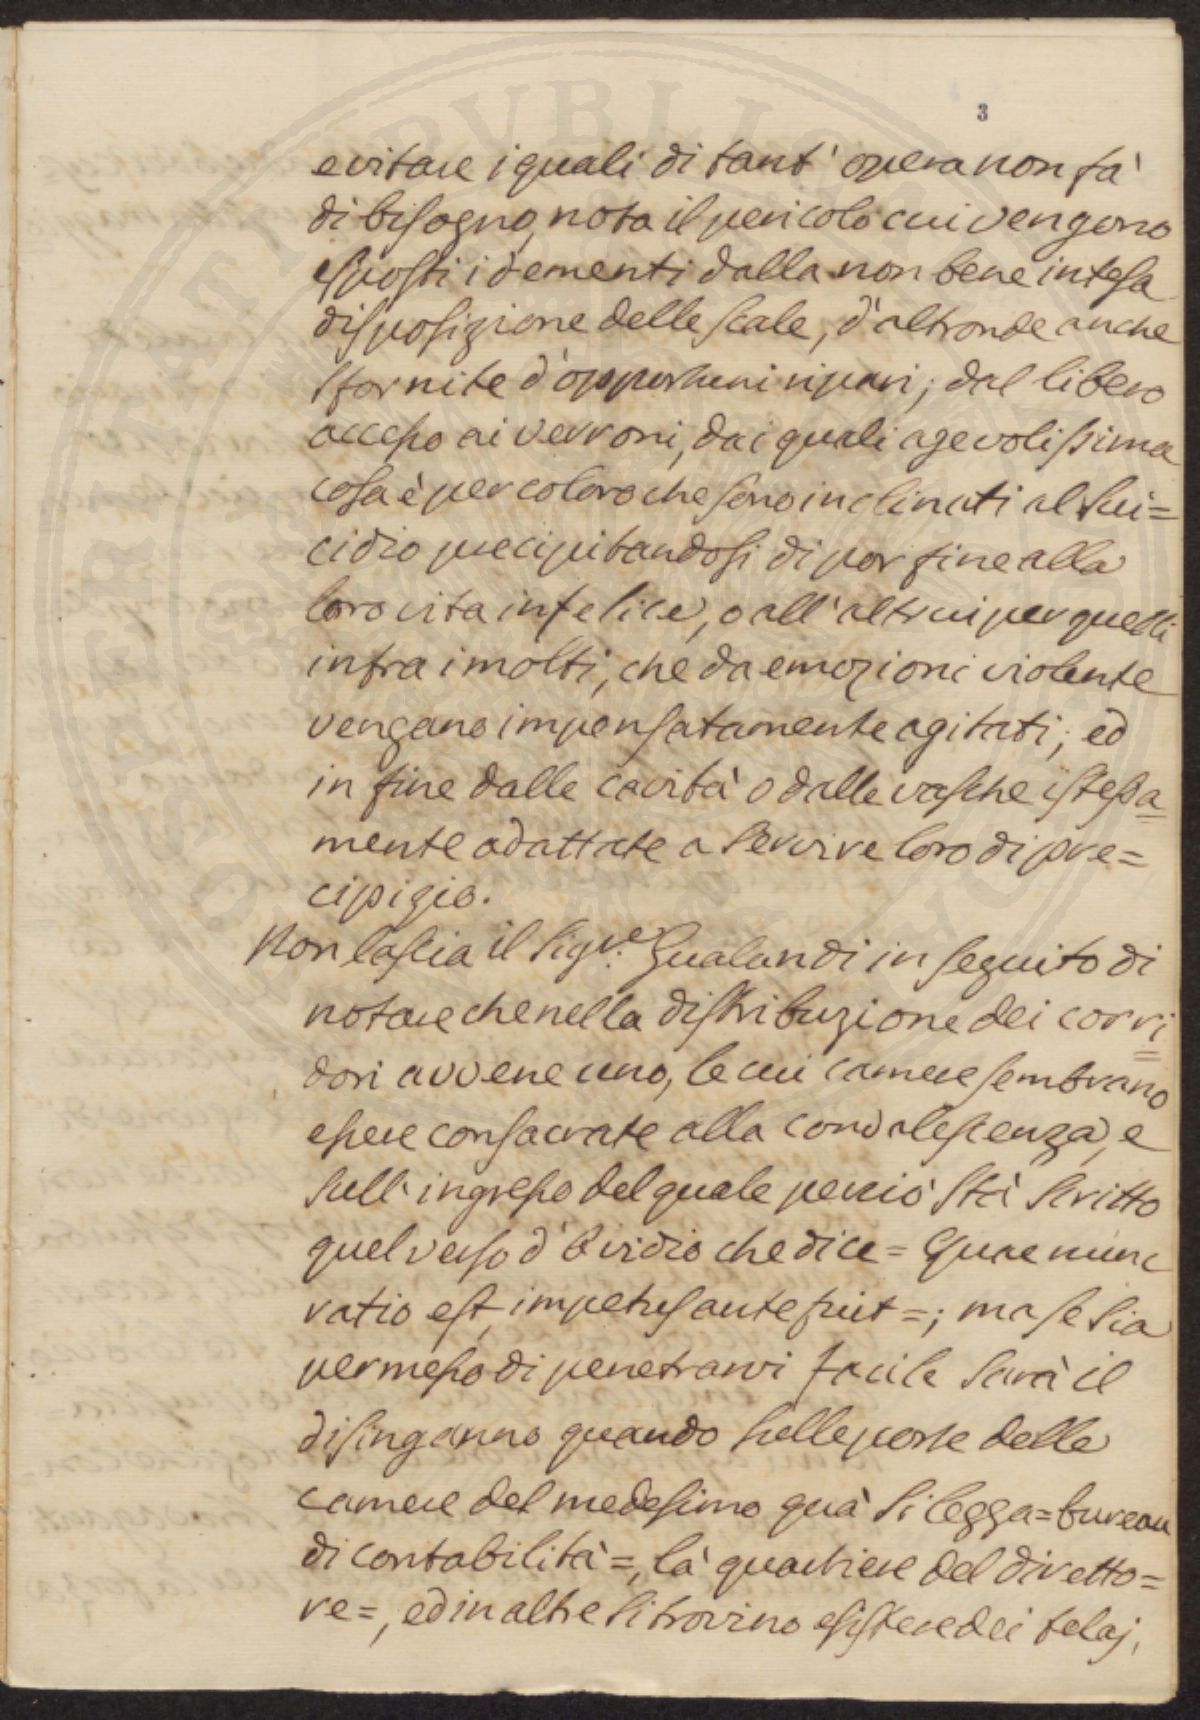 3
evitare i quali di tant' opera non fà
di bisogno, nota il pericolo cui vengono
esposti i dementi dalla non bene intesa
disposizione delle scale, d'altronde anche
sfornite d'opportuni ripari; dal libero
accesso ai verroni, dai quali agevolissima
cosa è per coloro che sono inclinati al sui=
cidio precipitandosi di por fine alla
loro vita infelice, o all'altrui per quelli
infra i molti, che da emozioni violente
vengano impensatamente agitati; ed
in fine dalle cavità o dalle vasche istessa=
mente adattate a servire loro di pre=
cipizio.
Non lascia il Sigre. Gualandi in seguito di
notare che nella distribuzione dei corri=
dori avvene uno, le cui camere sembrano
essere consacrate alla convalescenza, e
sull'ingresso del quale perciò stà scritto
quel verso d'Ovidio che dice = Quae nunc
ratio est, impetus ante fuit =; ma se sia
permesso di penetrarvi facile sarà il
disinganno quando sulle porte delle
camere del medesimo quà si legga = bureau
di contabilità =, là quartiere del diretto=
re =, ed in altre si trovino esistere dei telaj,
OSPERITATI PVBLICAE